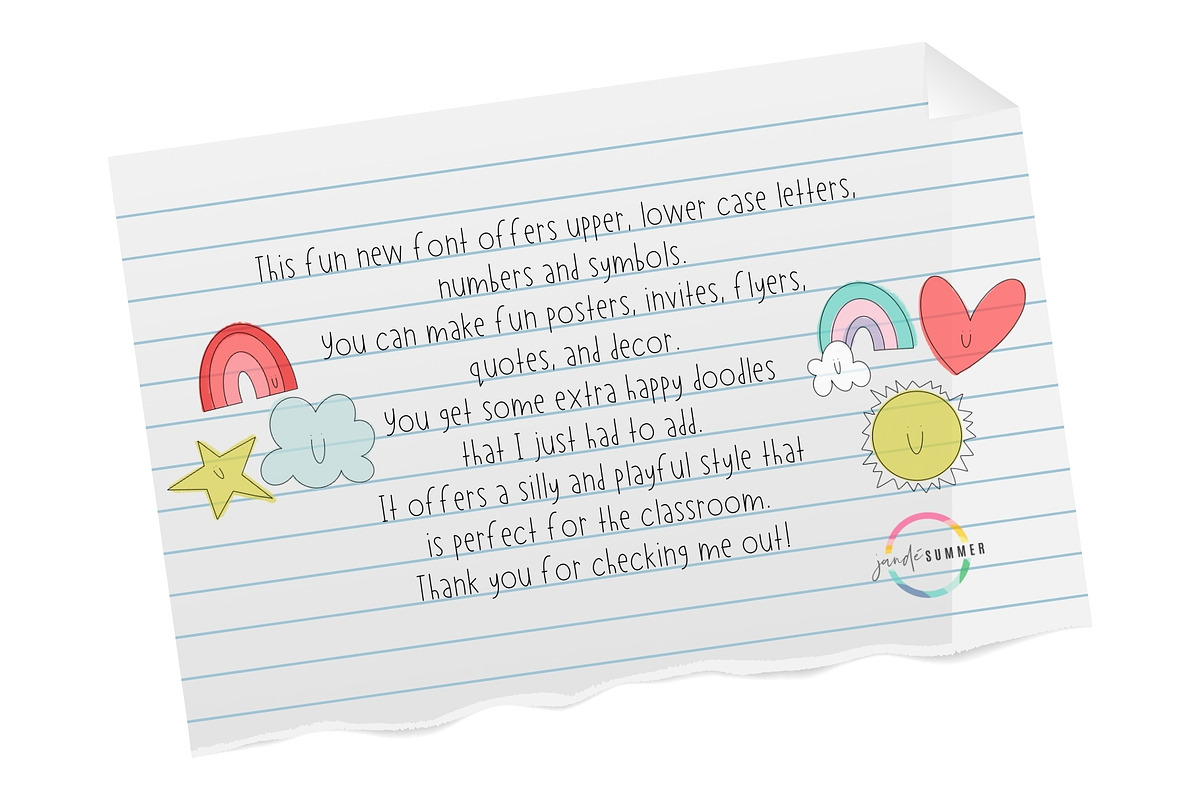 This fun new font offers upper, lower case letters,
numbers and symbols.
You can make fun posters, invites, flyers,
quotes, and decor.
You get some extra happy doodles
that I just had to add.
It offers a silly and playful style that
is perfect for the classroom.
Thank you for checking me out!
jandé SUMMER